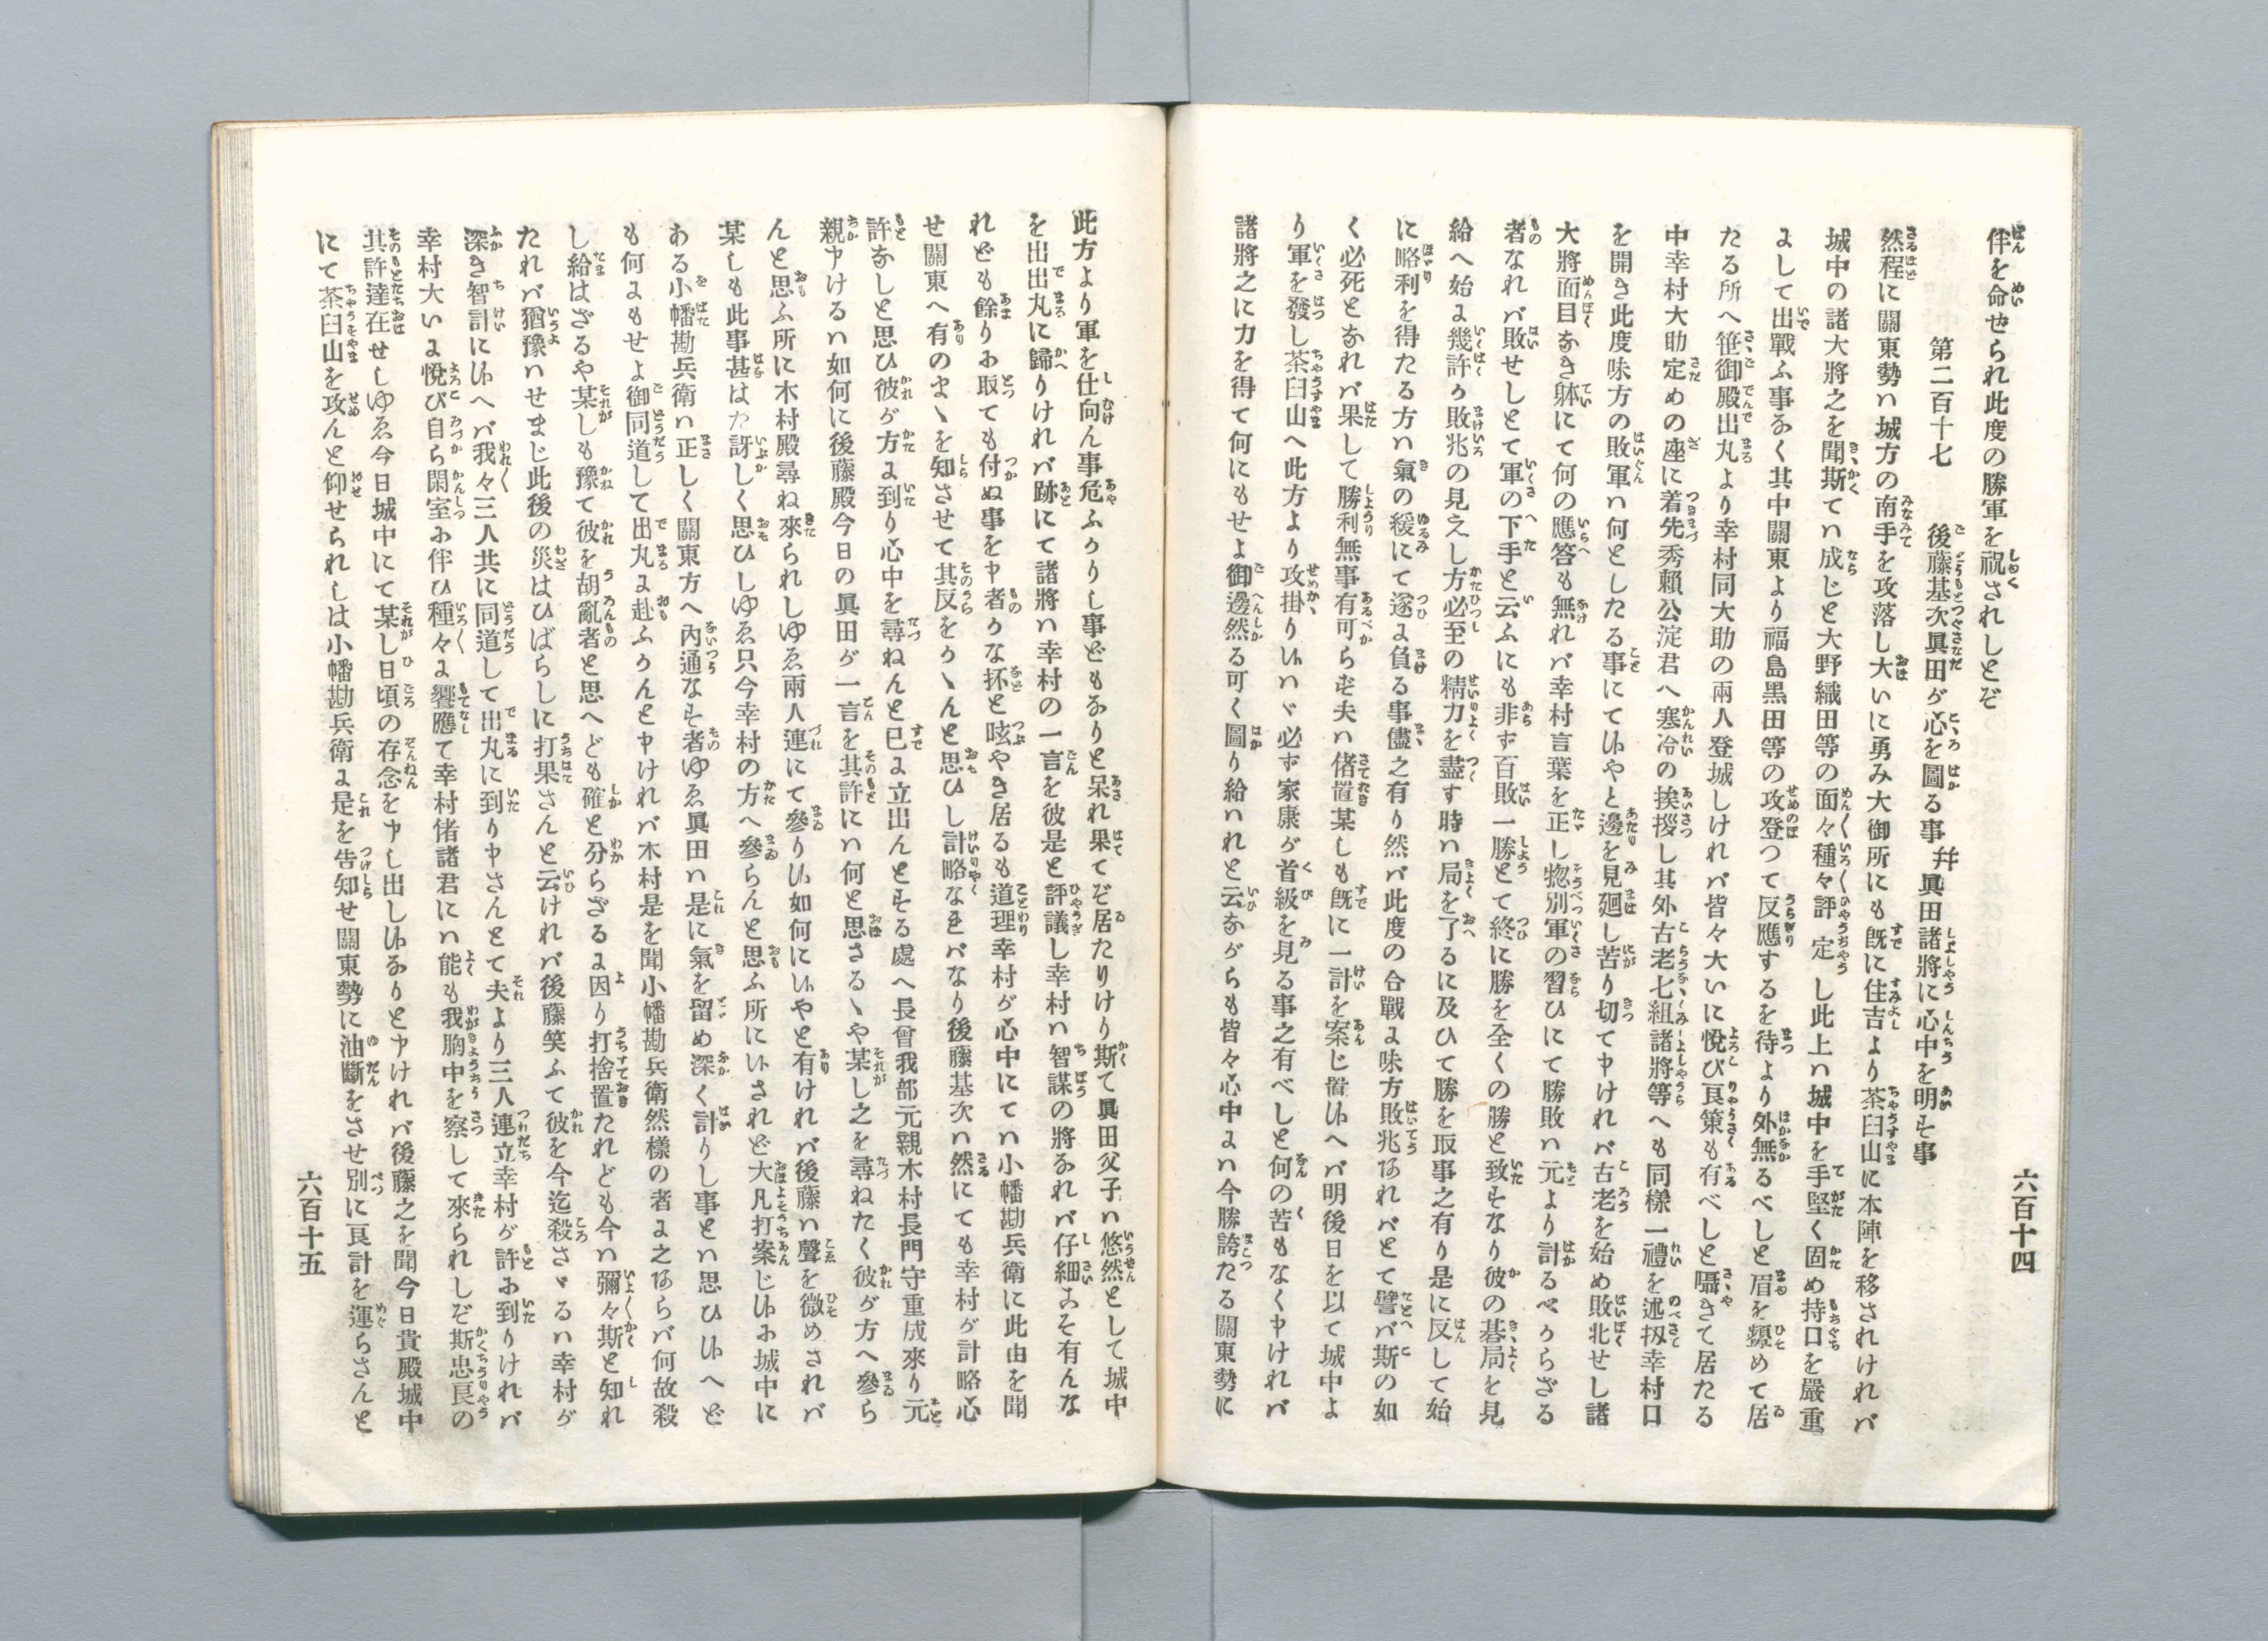 伴を命せられ此度の勝軍を祝されしとぞ
第二百十七　後藤基次眞田が心を圖る事并眞田諸將に心中を明す事
然程に關東勢ハ城方の南手を攻落し大いに勇み大御所にも既に住吉より茶臼山に本陣を移されけれバ
城中の諸大將之を聞斯てハ成じと大野織田等の面々種々評定し此上ハ城中を手堅く固め持口を嚴重
にして出戰ふ事なく其中關東より福島黒田等の攻登つて反應するを待より外無るべしと眉を顰めて居
たる所へ笹御殿出丸より幸村同大助の兩人登城しけれバ皆々大いに悅び良策も有べしと囁きて居たる
中幸村大助定めの座に着先秀賴公淀君へ寒冷の挨拶し其外古老七組諸將等へも同樣一禮を述扨幸村口
を開き此度味方の敗軍ハ何としたる事にて候やと邊を見廻し苦り切て申けれバ古老を始め敗北せし諸
大將面目なき躰にて何の應答も無れバ幸村言葉を正し惣別軍の習ひにて勝敗ハ元より計るべからざる
者なれバ敗せしとて軍の下手と云ふにも非ず百敗一勝とて終に勝を全くの勝と致すなり彼の碁局を見
給へ始に幾許か敗兆の見えし方必至の精力を盡す時ハ局を了るに及ひて勝を取事之有り是に反して始
に略利を得たる方ハ氣の緩にて遂に負る事儘之有り然バ此度の合戰に味方敗兆あれバとて譬バ斯の如
く必死となれバ果して勝利無事有可らず夫ハ偖置某しも既に一計を案じ置候へバ明後日を以て城中よ
り軍を發し茶臼山へ此方より攻掛り候ハヾ必ず家康が首級を見る事之有べしと何の苦もなく申けれバ
諸將之に力を得て何にもせよ御邊然る可く圖り給れと云ながらも皆々心中にハ今勝誇たる關東勢に
六百十四
此方より軍を仕向ん事危ふかりし事どもなりと呆れ果てぞ居たりけり斯て眞田父子ハ悠然として城中
を出出丸に歸りけれバ跡にて諸將ハ幸村の一言を彼是と評議し幸村ハ智謀の將なれバ仔細こそ有んな
れども餘りお取ても付ぬ事を申者かな抔と呟やき居るも道理幸村が心中にてハ小幡勘兵衛に此由を聞
せ關東へ有のまヽを知させて其反をかヽんと思ひし計略なれバなり後藤基次ハ然にても幸村が計略心
許なしと思ひ彼が方に到り心中を尋ねんと已に立出んとする處へ長曾我部元親木村長門守重成來り元
親申けるハ如何に後藤殿今日の眞田が一言を其許にハ何と思さるヽや某し之を尋ねたく彼が方へ參ら
んと思ふ所に木村殿尋ね來られしゆゑ兩人連にて參り候如何に候やと有けれバ後藤ハ聲を微めされバ
某しも此事甚はた訝しく思ひしゆゑ只今幸村の方へ參らんと思ふ所に候されど大凡打案じ候お城中に
ある小幡勘兵衛ハ正しく關東方へ內通なす者ゆゑ眞田ハ是に氣を留め深く計りし事とハ思ひ候へど
も何にもせよ御同道して出丸に赴ふかんと申けれバ木村是を聞小幡勘兵衛然樣の者に之あらバ何故殺
し給はざるや某しも豫て彼を胡亂者と思へども確と分らざるに因り打捨置たれども今ハ彌々斯と知れ
たれバ猶豫ハせまじ此後の災はひばらしに打果さんと云けれバ後藤笑ふて彼を今迄殺さヾるハ幸村が
深き智計に候へバ我々三人共に同道して出丸に到り申さんとて夫より三人連立幸村が許お到りけれバ
幸村大いに悅び自ら閑室お伴ひ種々に饗應て幸村偖諸君にハ能も我胸中を察して來られしぞ斯忠良の
其許達在せしゆゑ今日城中にて某し日頃の存念を申し出し候なりと申けれバ後藤之を聞今日貴殿城中
にて茶臼山を攻んと仰せられしは小幡勘兵衛に是を告知せ關東勢に油斷をさせ別に良計を運らさんと
六百十五